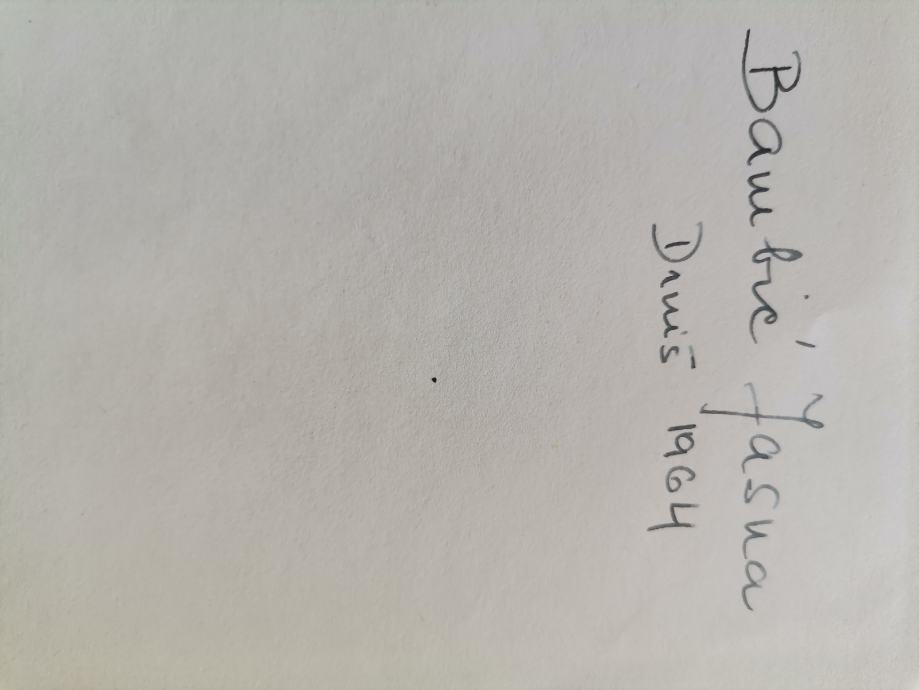 Bambić Jasna
Drniš 1964